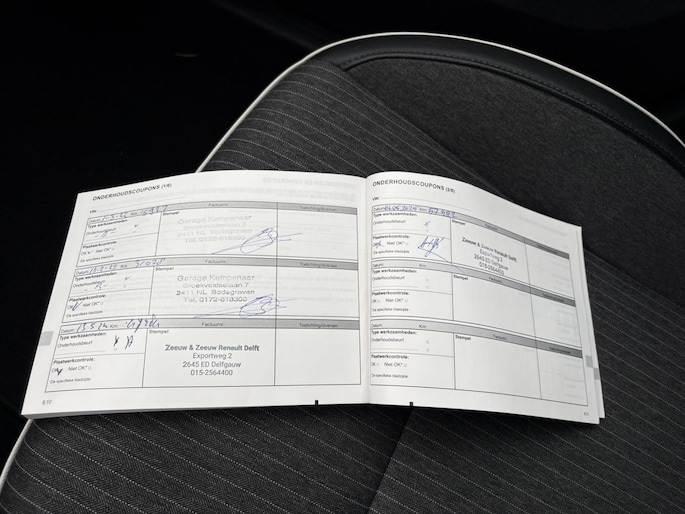 ONDERHOUDSCOUPONS (1/6)
VIN:
Datum: Km: Factuurnr. Toelichting/diversen
Type werkzaamheden: Stempel
Onderhoudsbeurt
Garage Kempenaar
Broekveldselaan 7
2411 NL Bodegraven
Tel. 0172-618300
Plaatwerkcontrole:
OK Niet OK*
*Zie specifieke bladzijde
Datum: Km: Factuurnr. Toelichting/diversen
Type werkzaamheden: Stempel
Onderhoudsbeurt
Garage Kempenaar
Broekveldselaan 7
2411 NL Bodegraven
Tel. 0172-618300
Plaatwerkcontrole:
OK Niet OK*
*Zie specifieke bladzijde
Datum: Km: Factuurnr. Toelichting/diversen
Type werkzaamheden: Stempel
Onderhoudsbeurt
Zeeuw & Zeeuw Renault Delft
Exportweg 2
2645 ED Delfgauw
015-2564400
Plaatwerkcontrole:
OK Niet OK*
*Zie specifieke bladzijde
6.10
ONDERHOUDSCOUPONS (2/6)
VIN:
Datum: Km:
Type werkzaamheden: Stempel
Onderhoudsbeurt
Zeeuw & Zeeuw Renault Delft
Exportweg 2
2645 ED Delfgauw
015-2564400
Plaatwerkcontrole:
Niet OK*
*Zie specifieke bladzijde
Datum: Km:
Type werkzaamheden: Stempel
Onderhoudsbeurt
Plaatwerkcontrole:
OK Niet OK*
*Zie specifieke bladzijde
Datum: Km:
Type werkzaamheden: Stempel
Onderhoudsbeurt
Plaatwerkcontrole:
OK Niet OK*
*Zie specifieke bladzijde